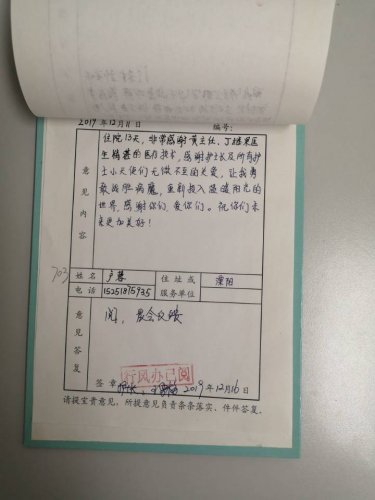 2019年12月11日 编号:
意见内容
住院13天,非常感谢黄主任、丁培果医
生精甚的医疗技术,感谢护士长及所有护
士小天使们无微不至的关爱,让我勇
敢战胜病魔,重新投入温暖阳光的
世界,感谢你们,爱你们。祝你们未
来更加美好!
703
姓名 卢慧 住址或 溧阳
电话 15251875935 服务单位
意见答复
阅,晨会反馈
行风办已阅
签章 2019年12月16日
请提宝贵意见,所提意见负责条条落实、件件答复。